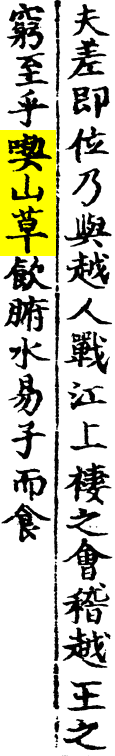 夫差即位乃與越人戰江上棲之會稽越王之
窮至乎喫山草飲腑水易子而食